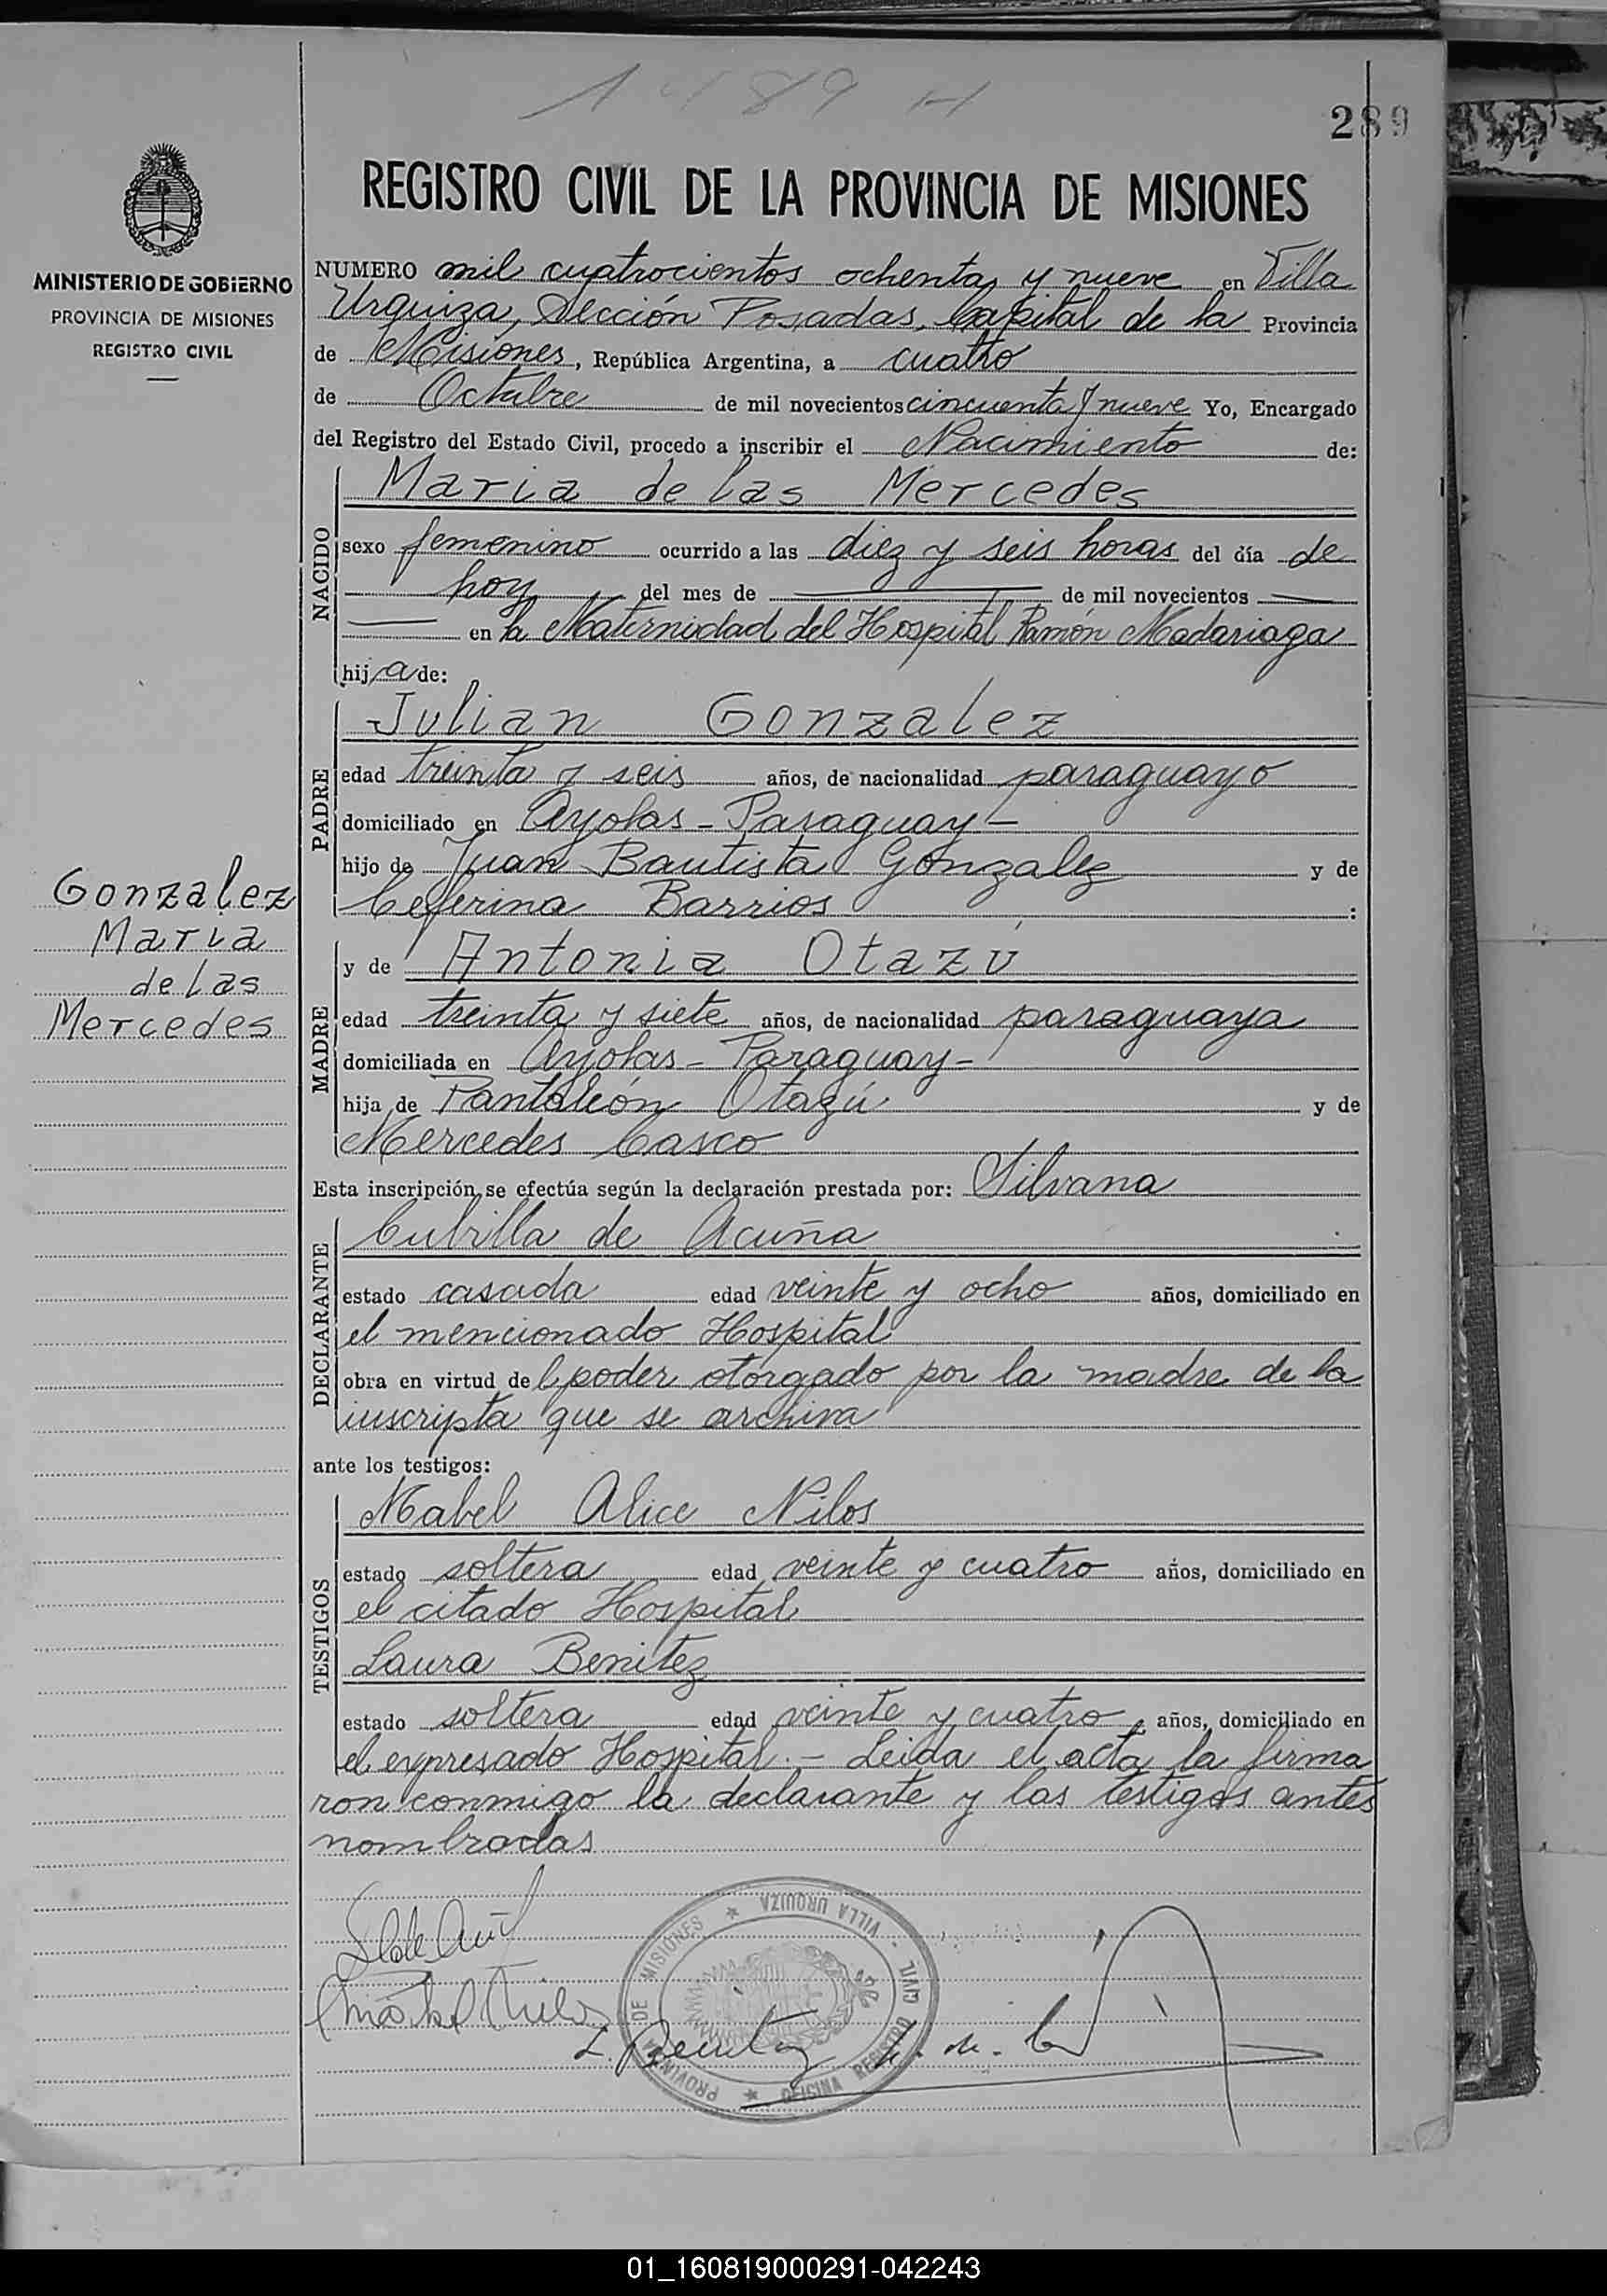 1489 H
289
MINISTERIO DE GOBIERNO
PROVINCIA DE MISIONES
REGISTRO CIVIL
REGISTRO CIVIL DE LA PROVINCIA DE MISIONES
NUMERO mil cuatrocientos ochenta y nueve en Villa
Urquiza, Sección Posadas, Capital de la Provincia
de Misiones, República Argentina, a cuatro
de Octubre de mil novecientos cincuenta y nueve Yo, Encargado
del Registro del Estado Civil, procedo a inscribir el Nacimiento de:
NACIDO
Maria de las Mercedes
sexo femenino ocurrido a las diez y seis horas del día de
hoy del mes de — de mil novecientos —
— en la Maternidad del Hospital Ramón Madariaga
hija de:
PADRE
Julian Gonzalez
edad treinta y seis años, de nacionalidad paraguayo
domiciliado en Ayolas - Paraguay -
hijo de Juan Bautista Gonzalez y de
Ceferina Barrios :
Gonzalez
Maria
de las
Mercedes
MADRE
y de Antonia Otazú
edad treinta y siete años, de nacionalidad paraguaya
domiciliada en Ayolas - Paraguay -
hija de Pantaleón Otazú y de
Mercedes Casco
Esta inscripción se efectúa según la declaración prestada por: Silvana
DECLARANTE
Cubilla de Acuña
estado casada edad veinte y ocho años, domiciliado en
el mencionado Hospital
obra en virtud del poder otorgado por la madre de la
inscripta que se archiva
ante los testigos:
TESTIGOS
Mabel Alice Nilos
estado soltera edad veinte y cuatro años, domiciliado en
el citado Hospital
Laura Benitez
estado soltera edad veinte y cuatro, años, domiciliado en
el expresado Hospital. - Leida el acta, la firma
ron conmigo la declarante y las testigos antes
nombradas
OFICINA REGISTRO CIVIL - VILLA URQUIZA ★ PROVINCIA DE MISIONES ★
L. Benitez
01_160819000291-042243